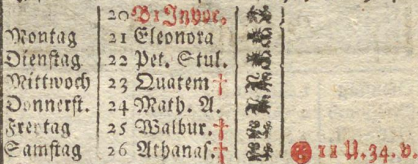 20 B1 Invoc,
Montag 21 Eleonora
Dienstag 22 Pet. Stul.
Mittwoch 23 Quatem †
Donnerst. 24 Math. A.
Freytag 25 Walbur. †
Samstag 26 Athanas. † 11 U. 34. v.